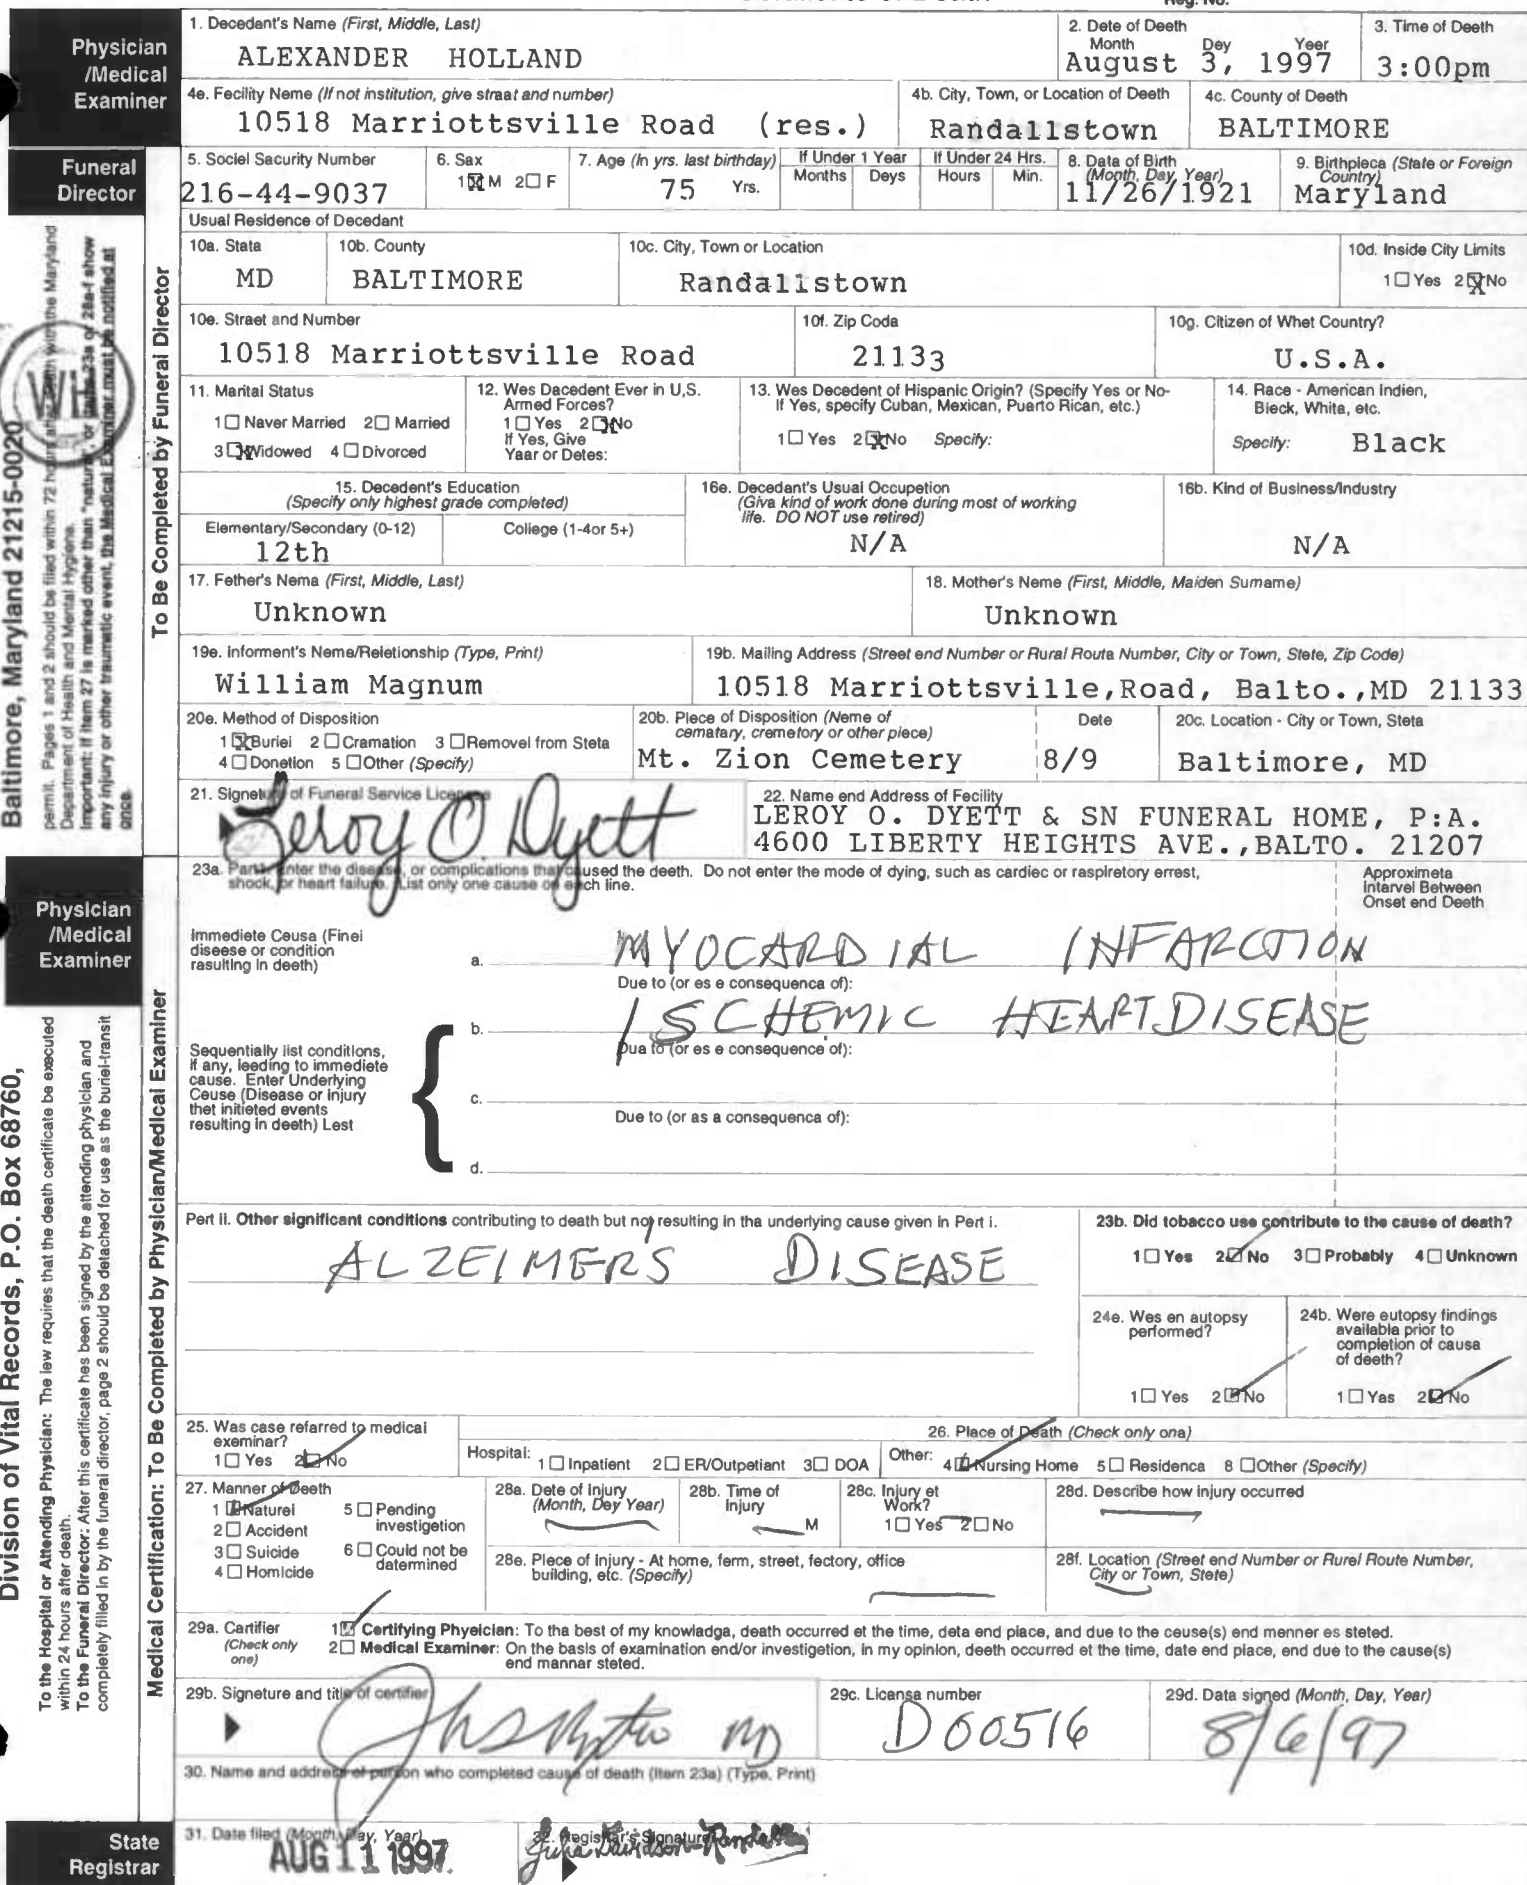 Physician
/Medical
Examiner
1. Decedant's Name (First, Middle, Last)
ALEXANDER HOLLAND
2. Dete of Deeth
Month Dey Yeer
August 3, 1997
3. Time of Deeth
3:00pm
4e. Fecility Name (If not institution, give straat and number)
10518 Marriottsville Road (res.)
4b. City, Town, or Location of Deeth
Randallstown
4c. County of Deeth
BALTIMORE
Funeral
Director
5. Sociel Sacurity Number
216-44-9037
6. Sax
1☒M 2☐ F
7. Age (In yrs. last birthday)
75 Yrs.
If Under 1 Year
Months Deys
If Under 24 Hrs.
Hours Min.
8. Data of Birth
(Month, Day, Year)
11/26/1921
9. Birthpleca (State or Foreign
Country)
Maryland
Usual Residence of Decedant
10a. Stata
MD
10b. County
BALTIMORE
10c. City, Town or Location
Randallstown
10d. Inside City Limits
1☐ Yes 2☒No
10e. Straet and Number
10518 Marriottsville Road
10f. Zip Coda
21133
10g. Citizen of Whet Country?
U.S.A.
11. Marital Status
1☐ Naver Married 2☐ Married
3☒Widowed 4☐ Divorced
12. Wes Dacedent Ever in U,S.
Armed Forces?
1☐ Yes 2☒No
If Yes, Give
Yaar or Detes:
13. Wes Decedent of Hispanic Origin? (Specify Yes or No-
If Yes, specify Cuban, Mexican, Puarto Rican, etc.)
1☐ Yes 2☒No Specify:
14. Race - American Indien,
Bieck, Whita, etc.
Specify: Black
15. Decedent's Education
(Specify only highest grade completed)
Elementary/Secondary (0-12)
12th
College (1-4or 5+)
16e. Decedant's Usual Occupetion
(Giva kind of work done during most of working
life. DO NOT use retired)
N/A
16b. Kind of Business/Industry
N/A
17. Fether's Nema (First, Middle, Last)
Unknown
18. Mother's Neme (First, Middle, Maiden Surname)
Unknown
19e. Informent's Neme/Reletionship (Type, Print)
William Magnum
19b. Mailing Address (Street end Number or Rural Route Number, City or Town, Stete, Zip Code)
10518 Marriottsville,Road, Balto.,MD 21133
20e. Method of Disposition
1☒Buriei 2☐Cramation 3☐Removel from Steta
4☐Donetion 5☐Other (Specify)
20b. Plece of Disposition (Neme of
cematary, cremetory or other piece)
Mt. Zion Cemetery
Dete
8/9
20c. Location - City or Town, Steta
Baltimore, MD
21. Signeture of Funeral Service Licensee
Leroy O. Dyett
22. Name end Address of Fecility
LEROY O. DYETT & SN FUNERAL HOME, P:A.
4600 LIBERTY HEIGHTS AVE.,BALTO. 21207
To Be Completed by Funeral Director
Baltimore, Maryland 21215-0020
permit. Pages 1 and 2 should be filed within 72 hours after death with the Maryland
Department of Health and Mental Hygiene.
Important: If item 27 is marked other than "natural" or items 23a or 28a-f show
any injury or other traumatic event, the Medical Examiner must be notified at
once.
Physician
/Medical
Examiner
23a. Part I. Enter the disease, or complications that caused the death. Do not enter the mode of dying, such as cardiec or raspiretory errest,
shock, or heart failure. List only one cause on each line.
Approximeta
Intarvel Between
Onset end Deeth
Immediete Ceusa (Finei
diseese or condition
rasulting in death)
a. MYOCARDIAL INFARCTION
Due to (or es e consequenca of):
b. ISCHEMIC HEART DISEASE
Dua to (or es e consequence of):
Sequentially list conditions,
if any, leeding to immediete
cause. Enter Underlying
Ceuse (Disease or injury
thet initieted events
resulting in deeth) Lest
c.
Due to (or as a consequenca of):
d.
Pert II. Other significant conditions contributing to death but not resulting in tha underlying cause given in Pert i.
ALZEIMERS DISEASE
23b. Did tobacco use contribute to the cause of death?
1☐ Yes 2☑No 3☐Probably 4☐Unknown
24e. Wes en autopsy
performed?
1☐ Yes 2☑No
24b. Were eutopsy findings
availabla prior to
completion of causa
of deeth?
1☐ Yas 2☑No
25. Was case referred to medical
exeminar?
1☐ Yes 2☑No
26. Place of Death (Check only ona)
Hospital: 1☐Inpatient 2☐ER/Outpetiant 3☐ DOA Other: 4☑Nursing Home 5☐ Residenca 8☐Other (Specify)
27. Manner of Deeth
1☑Naturel
2☐ Accident
3☐ Suicide
4☐ Homicide
5☐ Pending
investigation
6☐ Could not be
datermined
28a. Dete of Injury
(Month, Dey Year)
28b. Time of
Injury
M
28c. Injury et
Work?
1☐ Yes 2☐No
28d. Describe how injury occurred
28e. Plece of Injury - At home, ferm, street, fectory, office
building, etc. (Specify)
28f. Location (Street end Number or Rurel Route Number,
City or Town, Stete)
29a. Cartifier
(Check only
one)
1☑ Certifying Phyeician: To tha best of my knowladga, death occurred et the time, deta end place, and due to the ceuse(s) end menner es steted.
2☐ Medical Examiner: On the basis of examination end/or investigation, in my opinion, deeth occurred et the time, date end place, end due to the cause(s)
end mannar steted.
29b. Signeture and title of certifier
MD
29c. Licansa number
D00516
29d. Data signed (Month, Day, Year)
8/6/97
30. Name and address of person who completed cause of death (Item 23a) (Type, Print)
Medical Certification: To Be Completed by Physician/Medical Examiner
Division of Vital Records, P.O. Box 68760,
To the Hospital or Attending Physician: The lew requires that the death certificate be executed
within 24 hours after death.
To the Funeral Director: After this certificate hes been signed by the attending physician and
completely filled in by the funeral director, page 2 should be detached for use as the buriel-transit
State
Registrar
31. Date filed (Month, Day, Year)
AUG 11 1997
32. Registrar's Signature